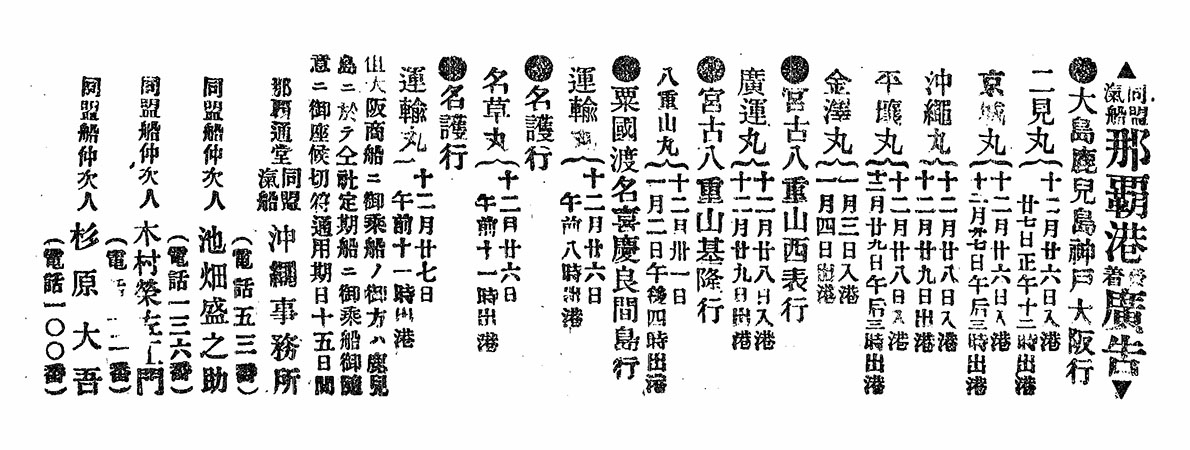 ▲同盟汽船那覇港發着廣告▼
●大島鹿兒島神戸大阪行
二見丸
十二月廿六日入港
廿七日正午十二時出港
京城丸
十二月廿六日入港
十二月廿七日午后三時出港
沖繩丸
十二月廿八日入港
十二月廿九日出港
平壤丸
十二月廿八日入港
十二月廿九日午后三時出港
金澤丸
一月三日入港
一月四日出港
●宮古八重山西表行
廣運丸
十二月廿八日入港
十二月廿九日出港
●宮古八重山基隆行
八重山丸
十二月卅一日
一月二日午後四時出港
●粟國渡名喜慶良間島行
運輸丸
十二月廿六日
午前八時出港
●名護行
名草丸
十二月廿六日
午前十一時出港
●名護行
運輸丸
十二月廿七日
午前十一時出港
但大阪商船ニ御乘船ノ御方ハ鹿兒
島ニ於テ仝社定期船ニ御乘船御隨
意ニ御座候切符通用期日十五日間
那覇通堂
同盟汽船
沖繩事務所
(電話五三番)
同盟船仲次人
池畑盛之助
(電話一三六番)
同盟船仲次人
木村榮左工門
(電 二一番)
同盟船仲次人
杉原大吾
(電話一〇〇番)